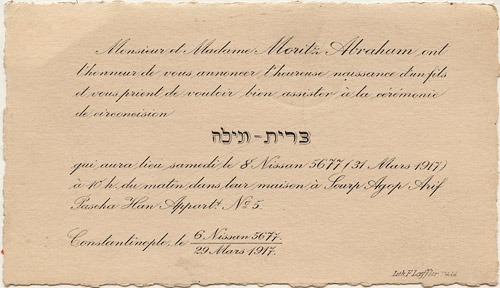 Monsieur et Madame Moritz Abraham ont
l'honneur de vous annoncer l'heureuse naissance d'un fils
et vous prient de vouloir bien assister à la cérémonie
de circoncision
ברית-מילה
qui aura lieu samedi le 8 Nissan 5677 (31 Mars 1917)
à 10 h. du matin dans leur maison à Sourp Agop Arif
Pascha Han Appart! No 5.
Constantinople, le 6 Nissan 5677.
29 Mars 1917.
Lith. F. Loeffler.